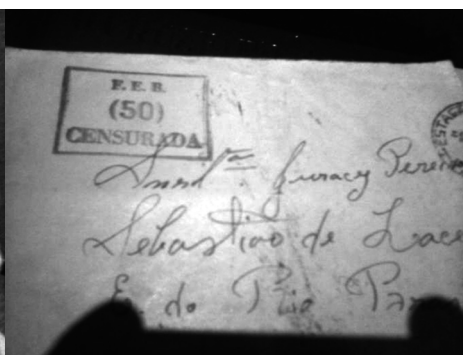 F. E. B.
(50)
CENSURADA
Juracy Perei
Sebastião de Lace
E. do Rio